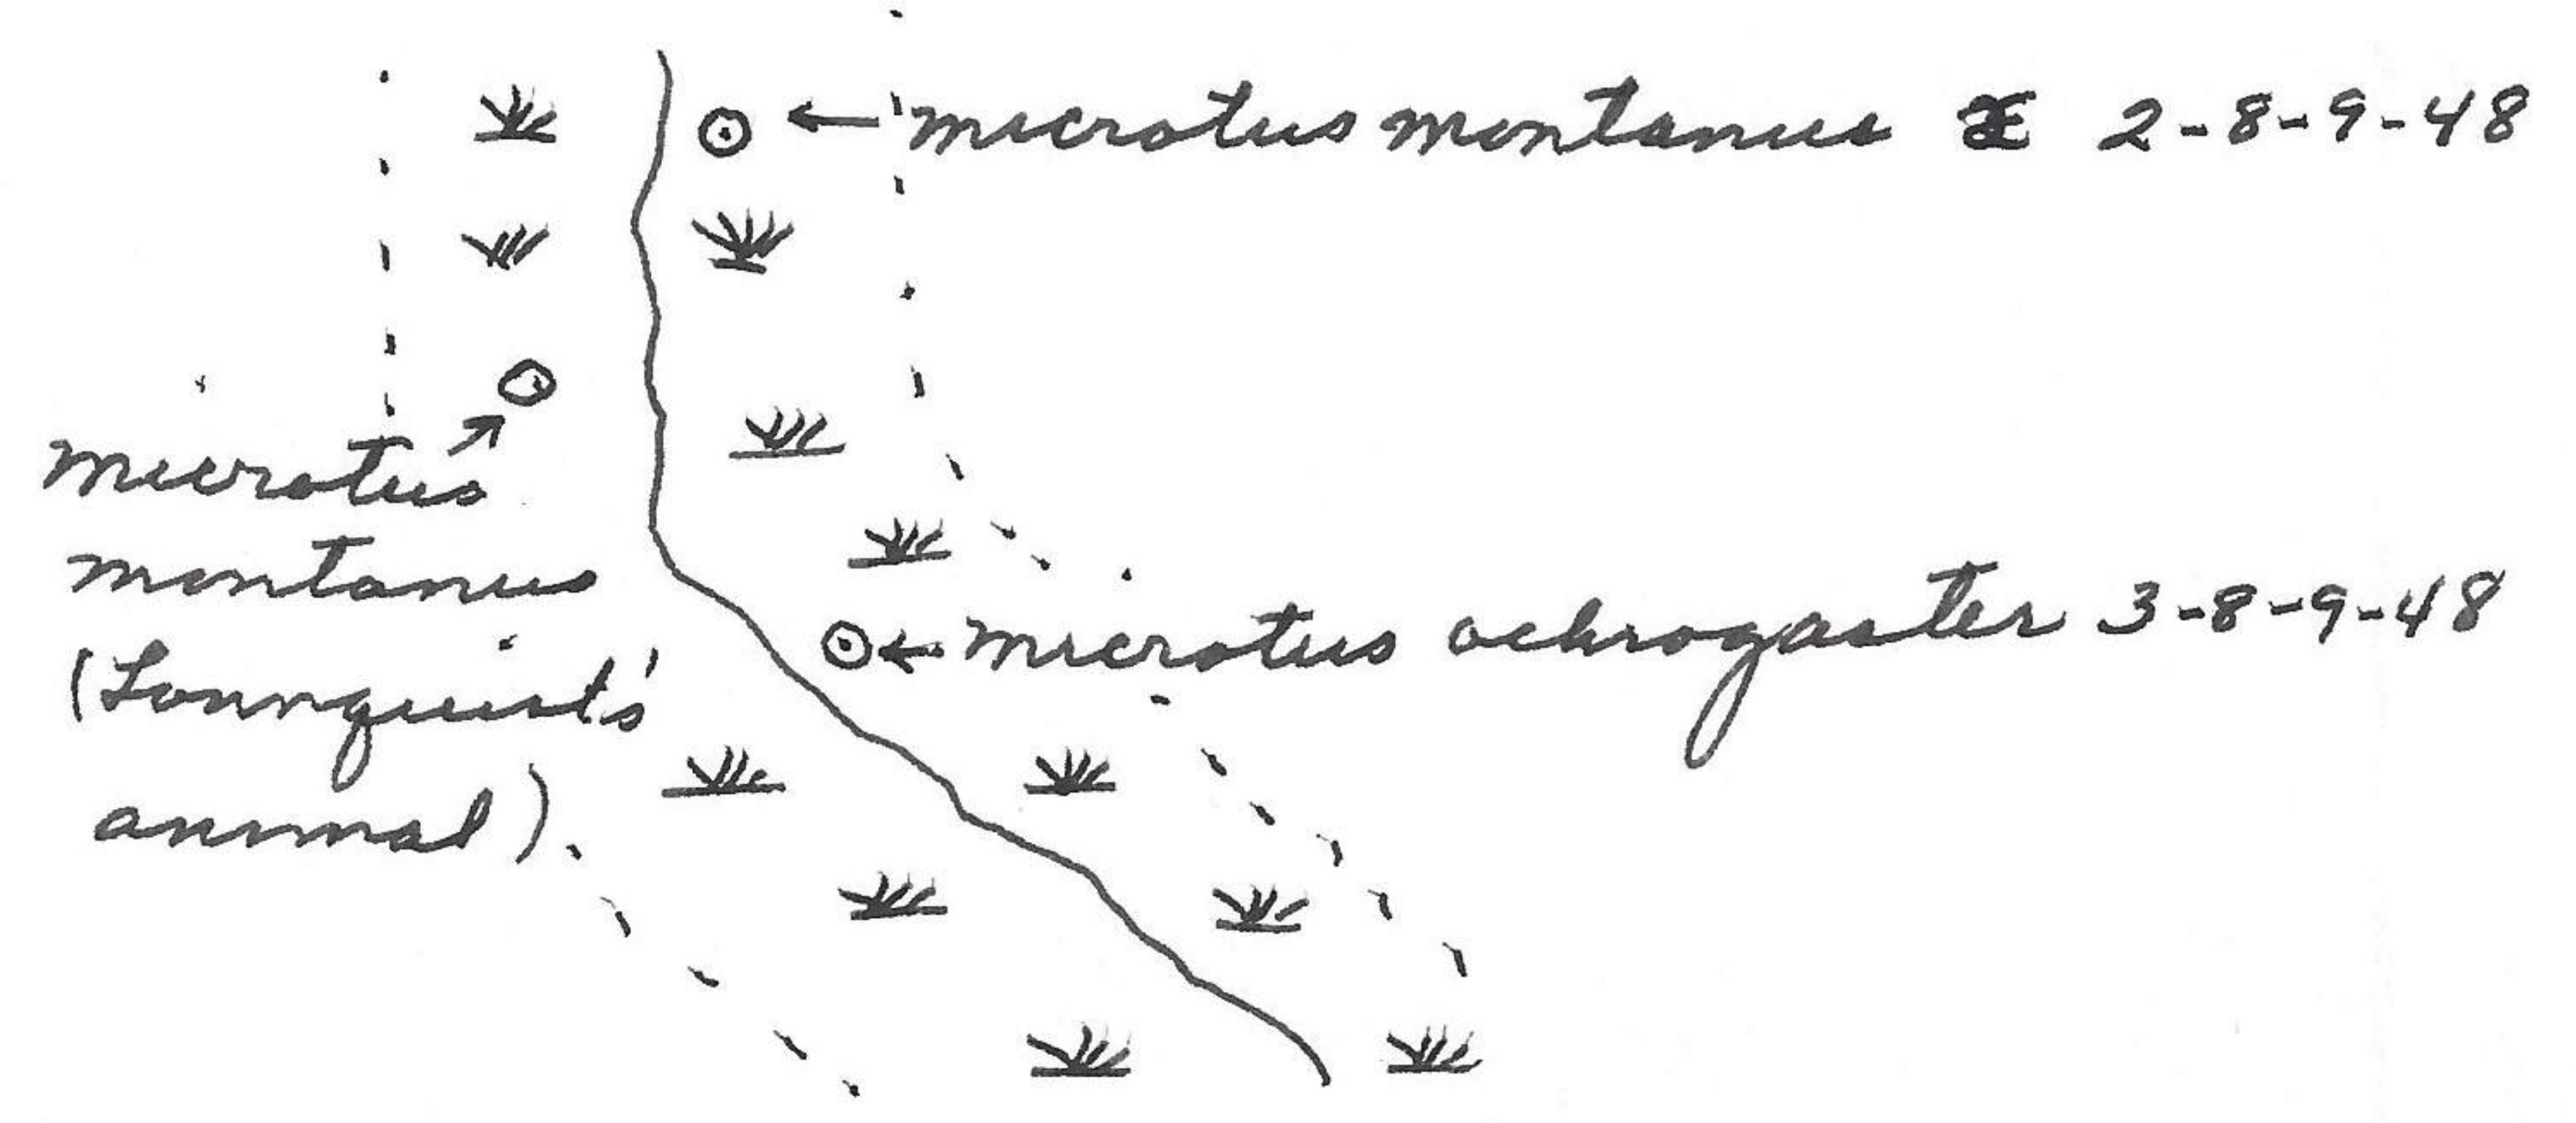 microtus montanus 2-8-9-48
microtus
montanus
(Lonnquist's
animal).
microtus ochrogaster 3-8-9-48